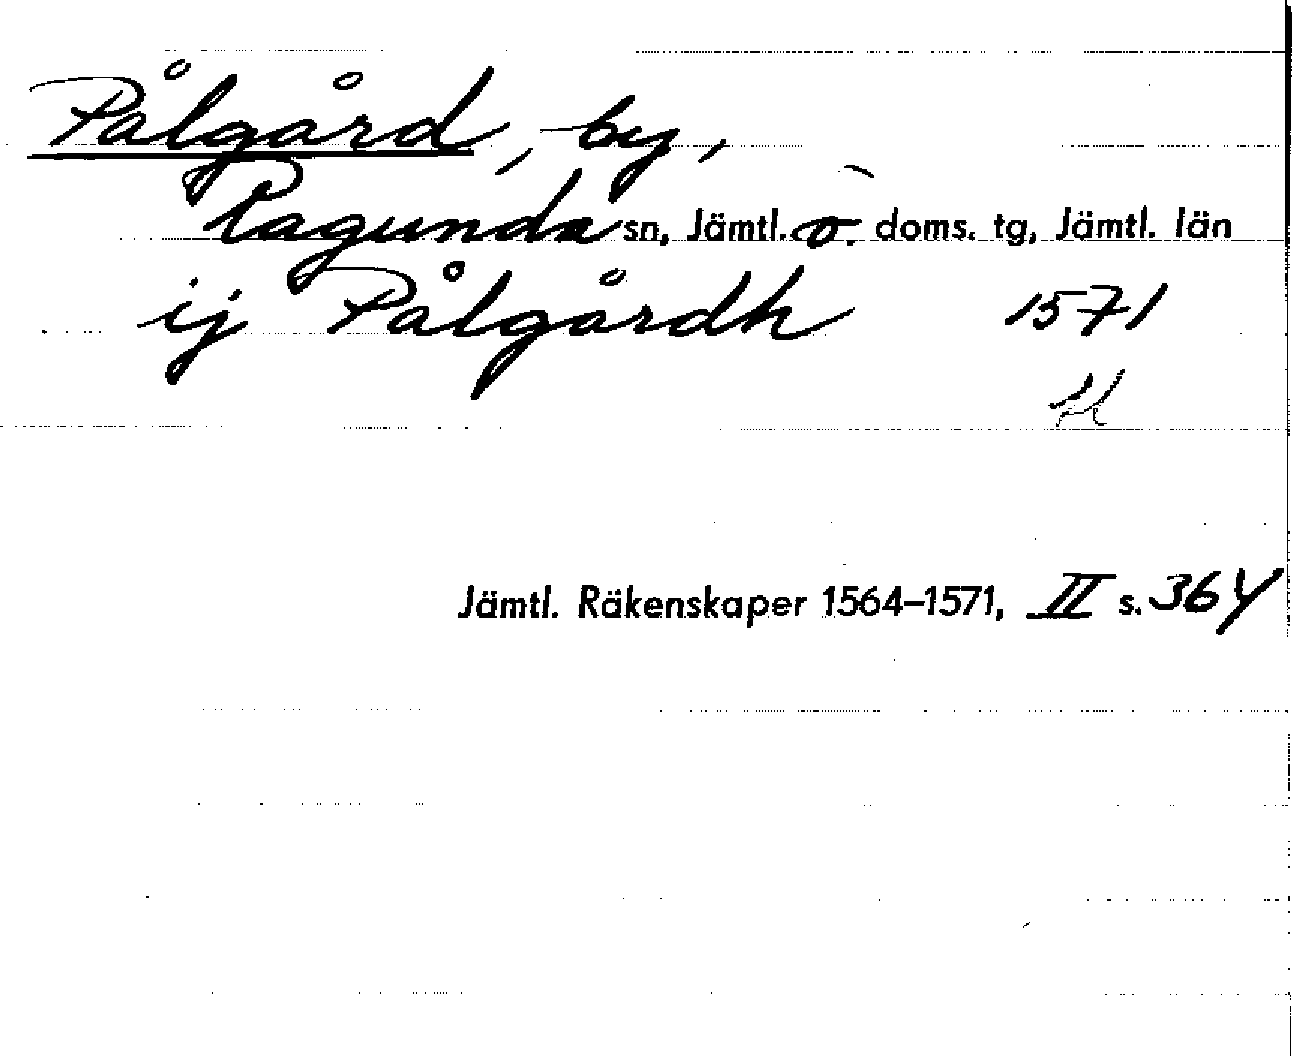 Pålgård, by,
Ragunda sn, Jämtl. ö. doms. tg, Jämtl. län
ij Pålgårdh 1571
Jämtl. Räkenskaper 1564–1571, II s. 364